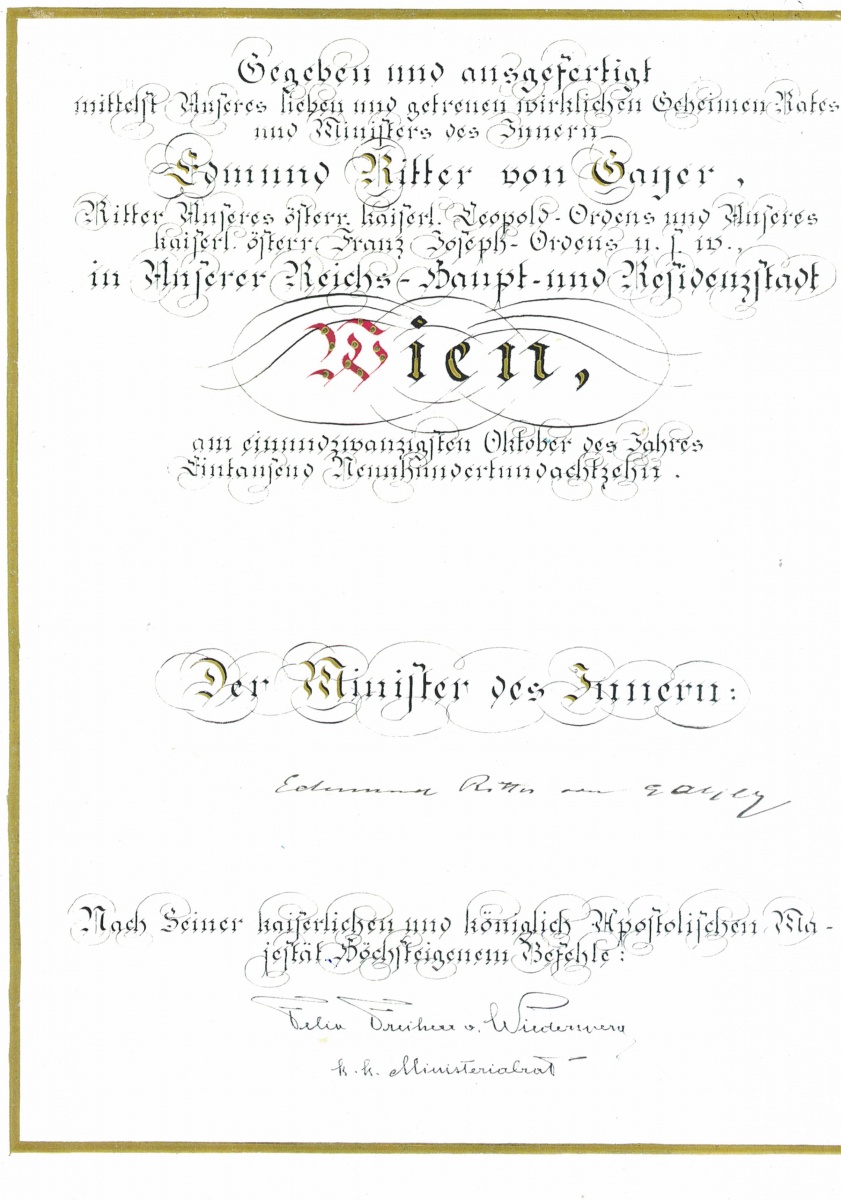 Gegeben und ausgefertigt
mittelst Unseres lieben und getreuen wirklichen Geheimen Rates
und Ministers des Innern
Edmund Ritter von Gayer,
Ritter Unseres österr. kaiserl. Leopold-Ordens und Unseres
kaiserl. österr. Franz Joseph-Ordens u. s. w.,
in Unserer Reichs-Haupt-und Residenzstadt
Wien,
am einundzwanzigsten Oktober des Jahres
Eintausend Neunhundertundachtzehn.
Der Minister des Innern:
Edmund Ritter von Gayer
Nach Seiner kaiserlichen und königlich Apostolischen Ma-
jestät Höchsteigenem Befehle:
Freiherr v.
k. k. Ministerialrat